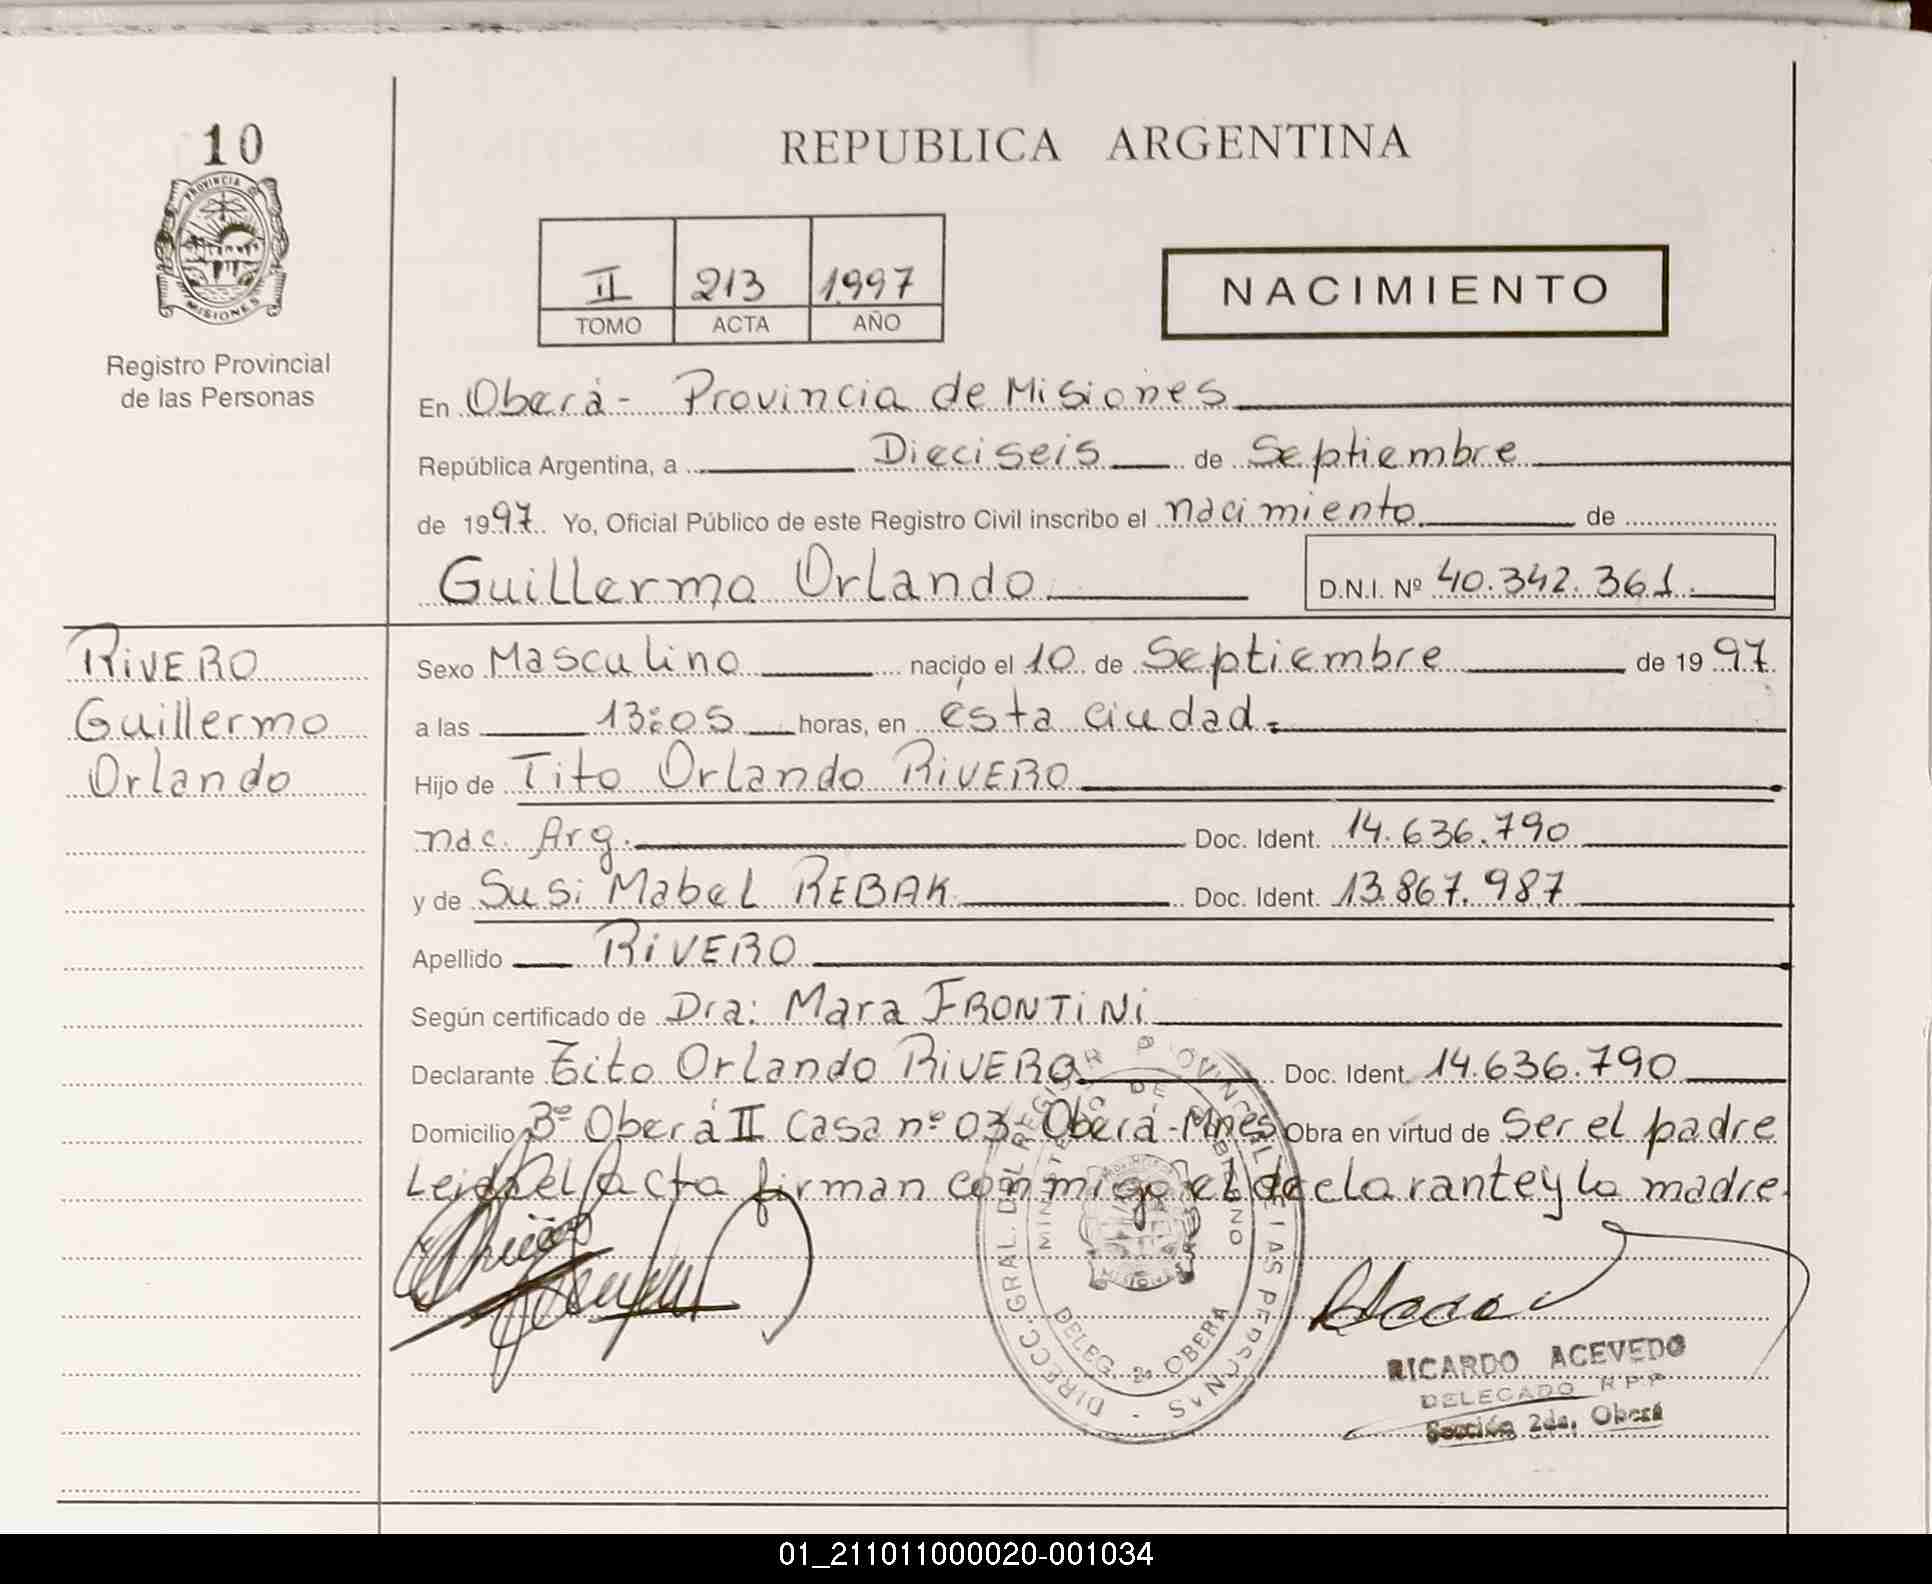 10
PROVINCIA DE
MISIONES
Registro Provincial
de las Personas
REPUBLICA ARGENTINA
II 213 1997
TOMO ACTA AÑO
NACIMIENTO
En Oberá - Provincia de Misiones
República Argentina, a Dieciseis de Septiembre
de 1997 Yo, Oficial Público de este Registro Civil inscribo el nacimiento de
Guillermo Orlando D.N.I. Nº 40.342.361.
RIVERO
Guillermo
Orlando
Sexo Masculino nacido el 10 de Septiembre de 1997
a las 13:05 horas, en ésta ciudad.
Hijo de Tito Orlando RIVERO
nac. Arg. Doc. Ident. 14.636.790
y de Susi Mabel REBAK Doc. Ident. 13.867.987
Apellido RIVERO
Según certificado de Dra: Mara FRONTINI
Declarante Tito Orlando RIVERO Doc. Ident. 14.636.790
Domicilio Bº Oberá II Casa nº 03 - Oberá - Mnes Obra en virtud de Ser el padre
Leida el Acta firman conmigo el declarante y la madre.
DIRECC. GRAL. DEL REGISTR PROVINCIAL DE LAS PERSONAS
MINISTERIO DE GOBIERNO
MISIONES
DELEG. 2a OBERA
RICARDO ACEVEDO
DELEGADO R.P.P
Sección 2da. Oberá
01_211011000020-001034